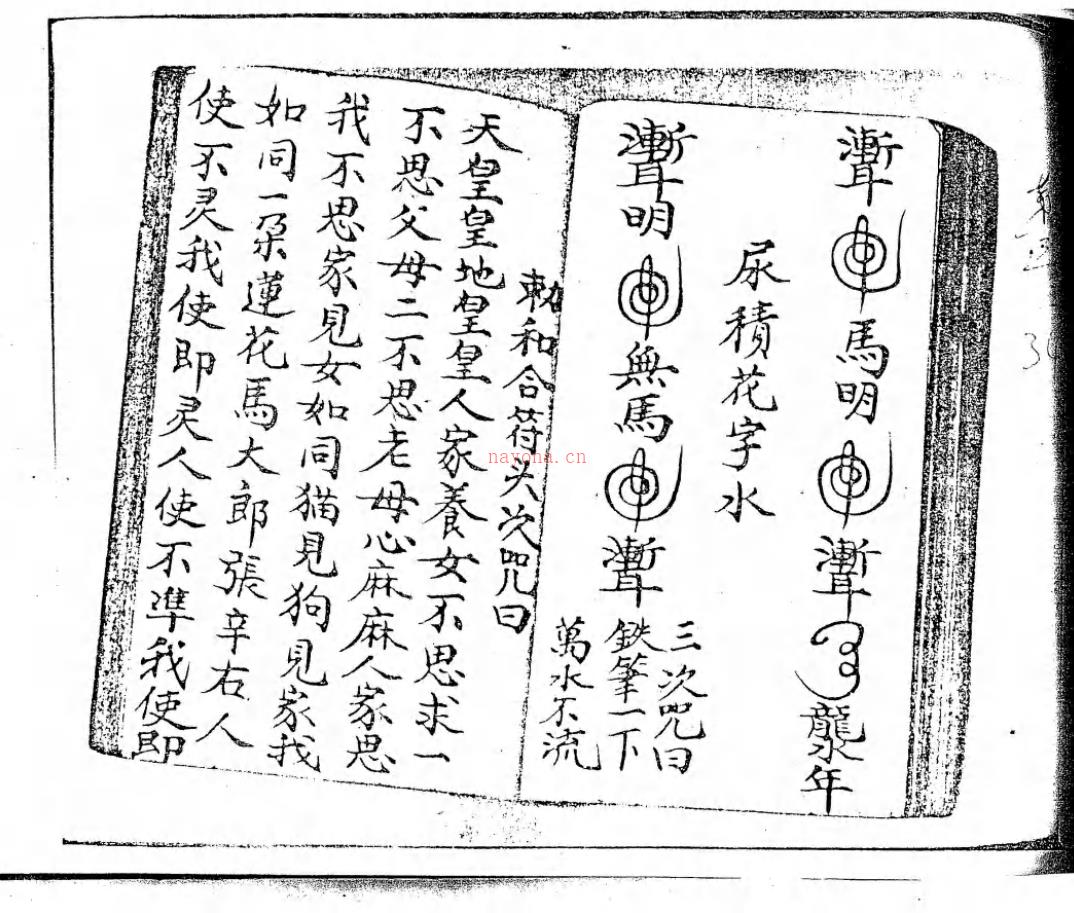 馬明龍水年
尿積花字水
明無馬
三次咒曰
鉄筆一下
萬水不流
敕和合符头次咒曰
天皇皇地皇皇人家養女不思求一
不思父母二不思老母心麻麻人家思
我不思家見女如同猫見狗見家我
如同一朵蓮花馬大郎張辛右人
使不灵我使即灵人使不準我使即
nayona.cn